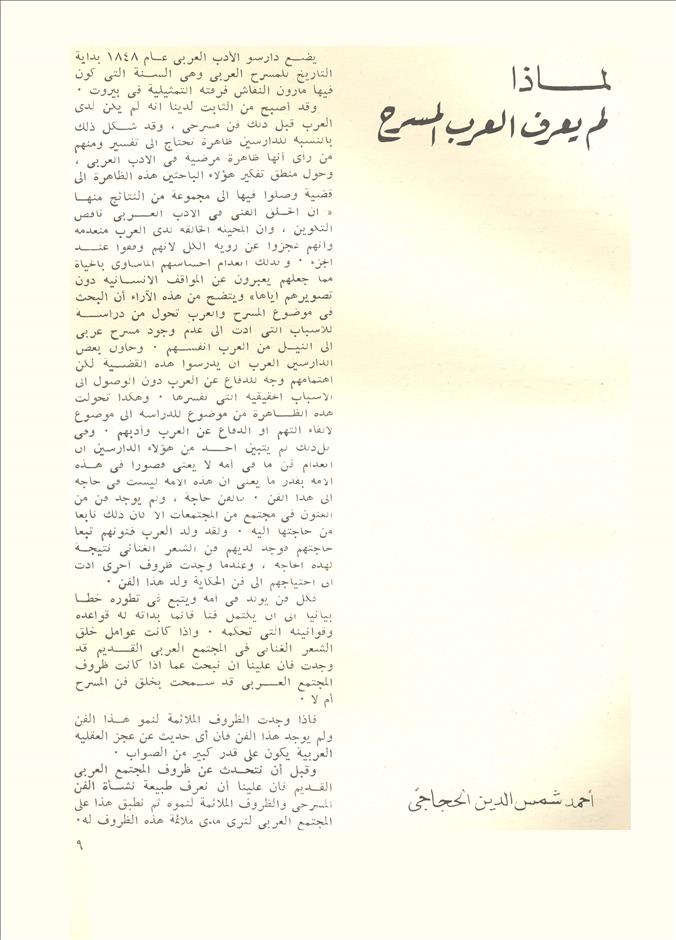 لمــاذا
لم يعرف العرب المسرح
يضــع دارسو الأدب العربى عـام ١٨٤٨ بداية
التاريخ للمسرح العربى وهى السـنة التى كون
فيها مارون النقاش فرقته التمثيلية فى بيروت ٠
وقد أصبح من الثابت لدينا انه لم يكن لدى
العرب قبل ذلك فن مسرحى ، وقد شـكل ذلك
بالنسبة للدارسين ظاهرة تحتاج الى تفسير ومنهم
من رأى أنها ظاهرة مرضية فى الادب العربى ،
وحول منطق تفكير هؤلاء الباحثين هذه الظاهرة الى
قضية وصلوا فيها الى مجموعة من النتائج منهـا
« ان الخـلق الفنى فى الادب العــربى ناقص
التكوين ، وان المخيلة الخالقة لدى العرب منعدمة
وانهم عجزوا عن رؤية الكل لانهم وقفوا عنــد
الجزء ٠ وكذلك انعدام احساسهم المأساوى بالحياة
مما جعلهم يعبرون عن المواقف الانسـانية دون
تصويرهم اياها» ويتضح من هذه الآراء أن البحث
فى موضوع المسرح والعرب تحول من دراســة
للاسباب التى ادت الى عدم وجود مسرح عربى
الى النيــل من العرب انفســهم ٠ وحاول بعض
الدارسين العرب ان يدرسوا هذه القضـية لكن
اهتمامهم وجه للدفاع عن العرب دون الوصول الى
الاسباب الحقيقيه التى تفسرها ٠ وهكذا تحولت
هذه الظــاهرة من موضوع للدراسة الى موضوع
لالقاء التهم او الدفاع عن العرب وأدبهم ٠ وفى
كل ذلك لم يتبين احــد من هؤلاء الدارسين ان
انعدام فن ما فى امة لا يعنى قصورا فى هـذه
الامة بقدر ما يعنى ان هذه الامة ليست فى حاجة
الى هذا الفن ٠ فالفن حاجة ، ولم يوجد فن من
الفنون فى مجتمع من المجتمعات الا كان ذلك نابعا
من حاجتها اليه ٠ ولقد ولد العرب فنونهم تبعا
حاجتهم فوجد لديهم فن الشعر الغنائى نتيجـة
لهذه الحاجة ، وعندما وجدت ظروف أخرى ادت
الى احتياجهم الى فن الحكاية ولد هذا الفن ٠
فكل فن يولد فى امة ويتبع فى تطوره خطـا
بيانيا الى ان يكتمل فنا قائما بذاته له قواعده
وقوانينه التى تحكمه ٠ واذا كانت عوامل خلق
الشعر الغنائى فى المجتمع العربى القـديم قد
وجدت فان علينا ان نبحث عما اذا كانت ظروف
المجتمع العــربى قد سـمحت بخلق فن المسرح
أم لا ٠
فاذا وجدت الظروف الملائمة لنمو هـذا الفن
ولم يوجد هذا الفن فان أى حديث عن عجز العقليه
العربية يكون على قدر كبير من الصواب ٠
وقبل أن نتحـدث عن ظروف المجتمع العربى
القـديم فان علينا أن نعرف طبيعة نشـأة الفن
المسرحى والظروف الملائمة لنموه ثم نطبق هذا على
المجتمع العربى لنرى مدى ملائمة هذه الظروف له٠
أحمد شمس الدين الحجاجى
٩